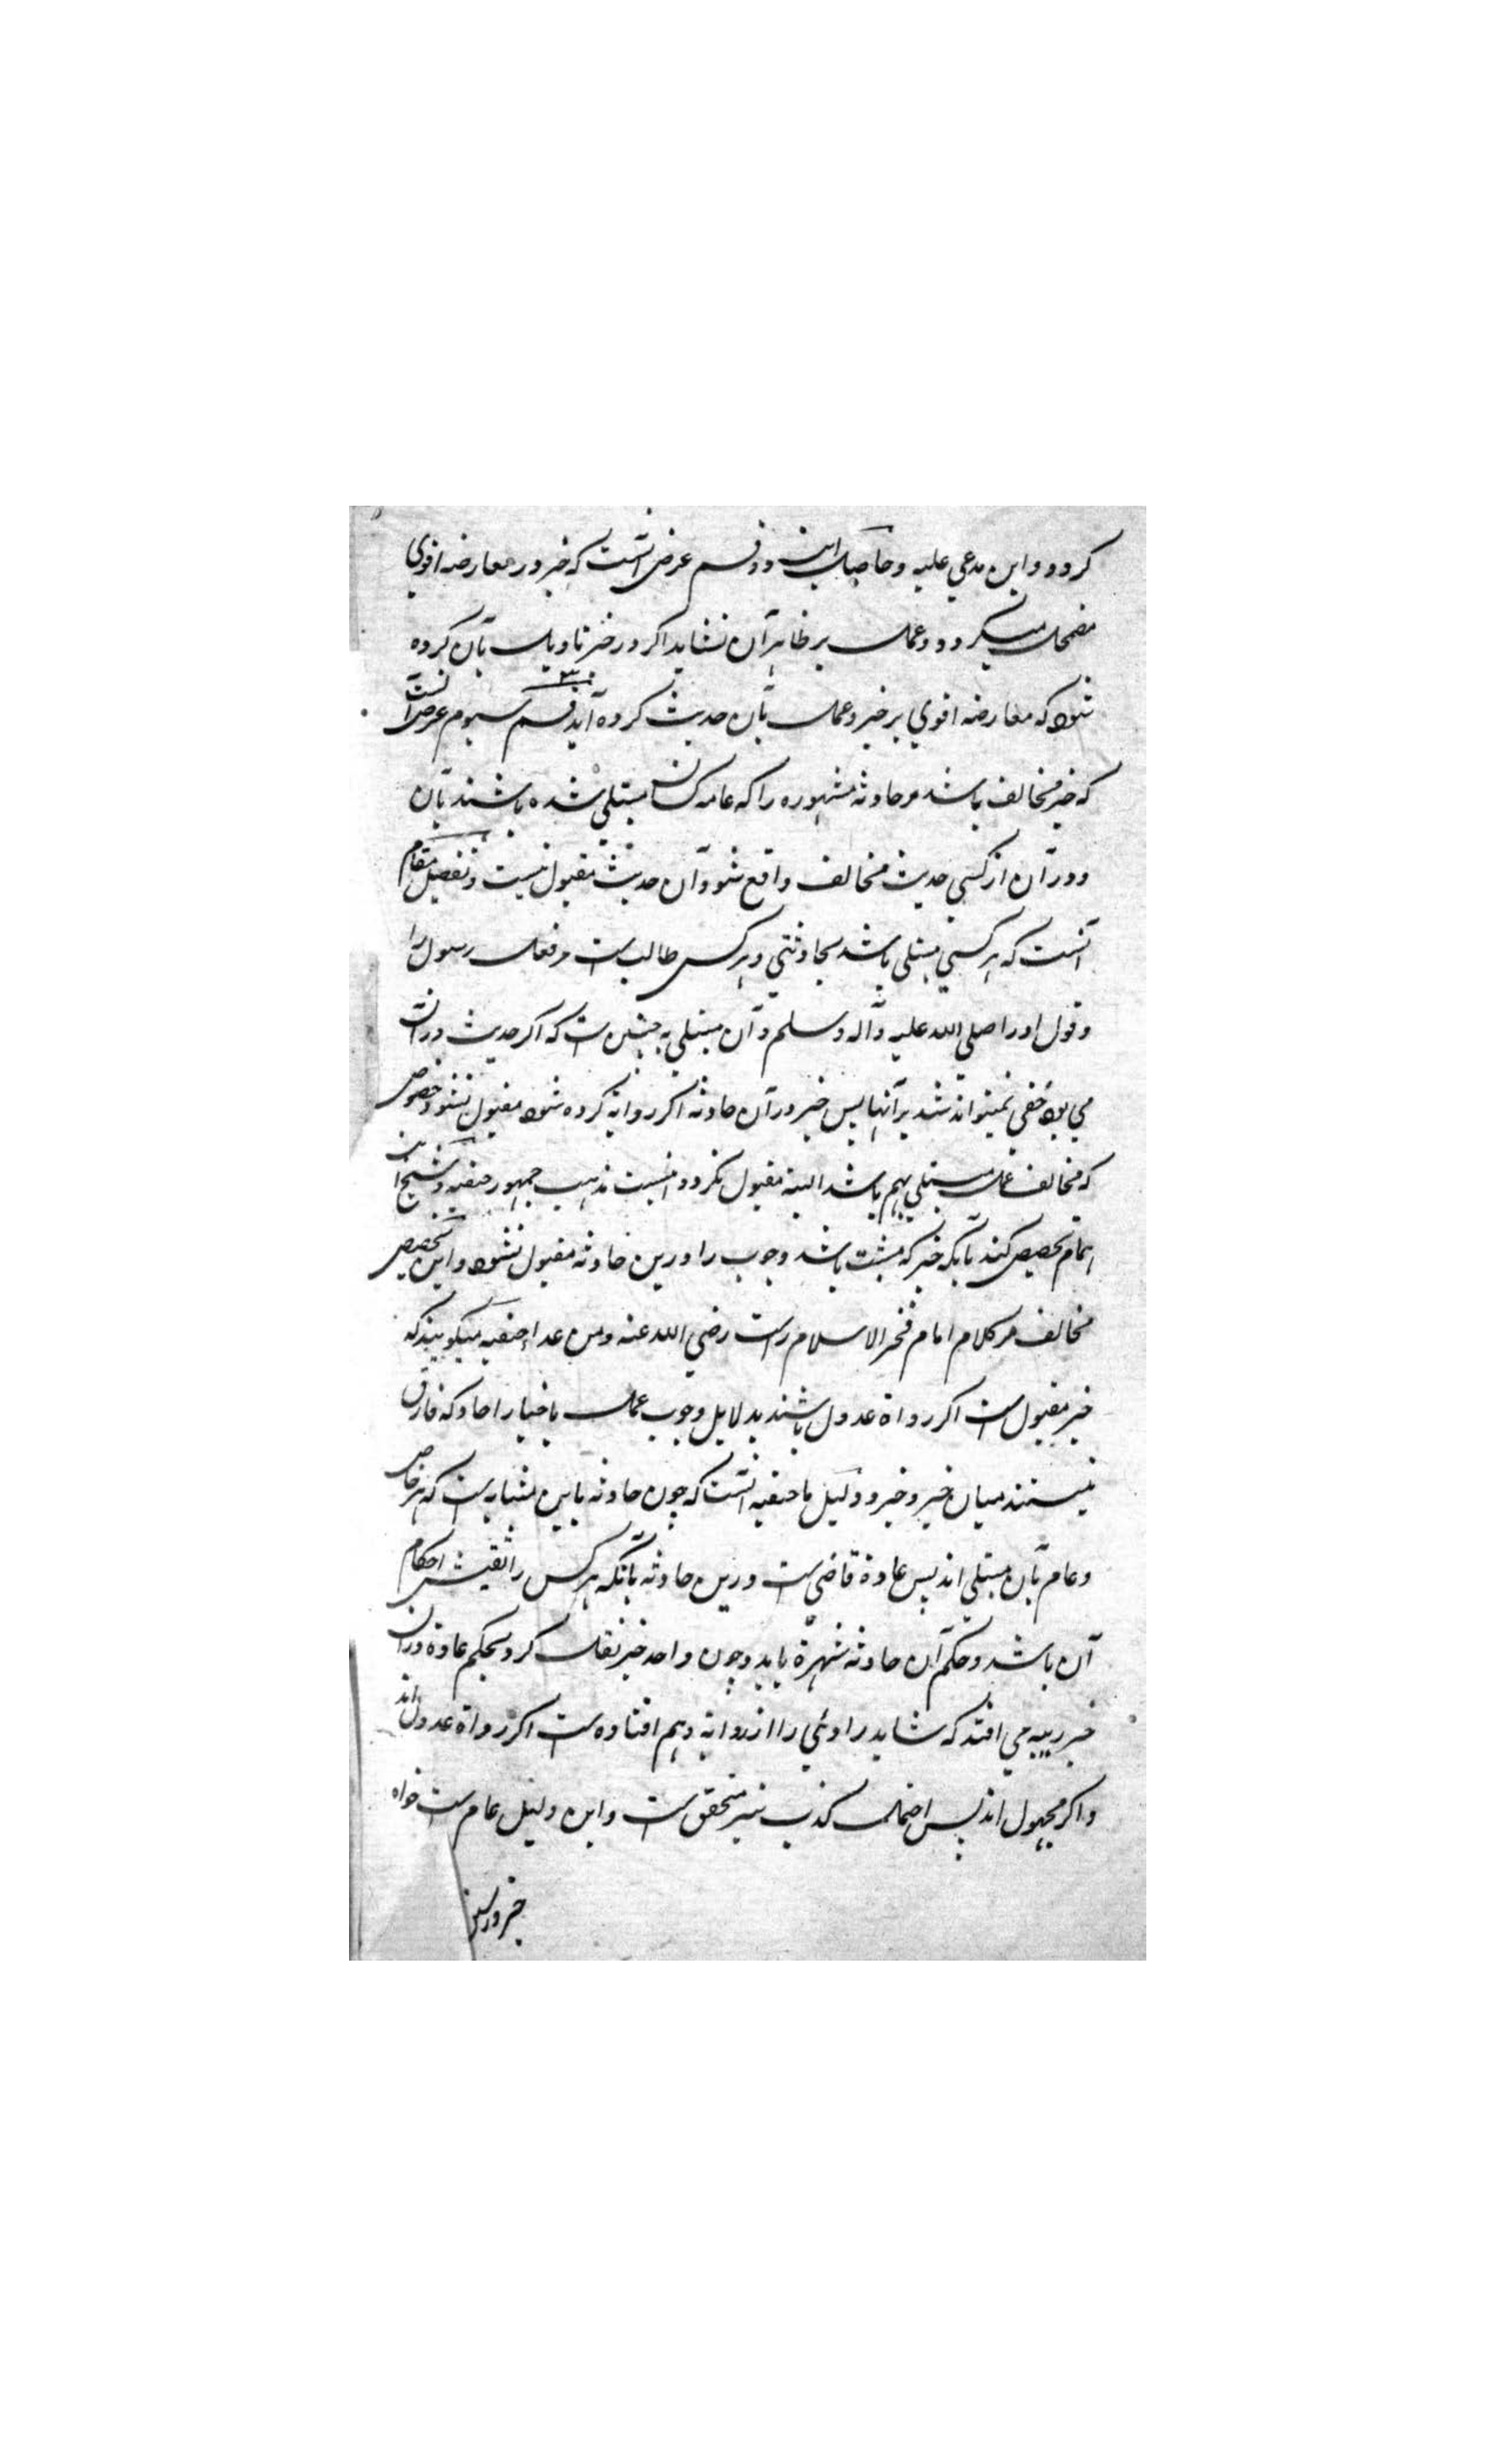 کردد و این مدعی علیه و حاصل این دو قسم عرض آنست که خبر در معارضه اقوی
مضمحل میکردد و عمل بر ظاهر آن نشاید اکر در خبر تاویل بآن کرده
شود که معارضه اقوی بر خیزد عمل بآن حدیث کرده آید قسم سیوم عرض آنست
که خبر مخالف باشد مر حادثه مشهوره را که عامه کسان مبتلی شده باشند بآن
و در آن از کسی حدیث مخالف واقع شود آن حدیث مقبول نیست و تفصیل مقام
آنست که هر کسی مبتلی باشد بحادثتی و هر کس طالب است مر فعل رسول را
و قول او را صلی الله علیه و آله وسلم و آن مبتلی به چنین است که اکر حدیث در آن
می بود خفی نمیتواند شد بر آنها پس خبر در آن حادثه اکر روایة کرده شود مقبول نشود خصوص
که مخالف عمل مبتلی بهم باشد البته مقبول نکردد اینست مذهب جمهور حنفیه و شیخ ابن
همام تخصیص کند بآنکه خبر که مثبت باشد وجوب را درین حادثه مقبول نشود و این تخصیص
مخالف مر کلام امام فخر الاسلام راست رضی الله عنه و من عدا حنفیه میکویند که
خبر مقبول است اکر رواة عدول باشند بدلایل وجوب عمل باخبار احاد که فارق
نیستند میان خبر و خبر و دلیل ما حنفیه آنست که چون حادثه باین مثابه است که هر خاص
و عام بآن مبتلی اند پس عادة قاضی است درین حادثه بآنکه هر کس را تفتیش احکام
آن باشد و حکم آن حادثه شهرة یابد و چون واحد خبر نقل کرد بحکم عادة در آن
خبر ریبه می افتد که شاید راوئی را از روایة وهم افتاده است اکر رواة عدول اند
و اکر مجهول اند پس احتمال کذب نیز متحقق است و این دلیل عام است خواه
خبر در